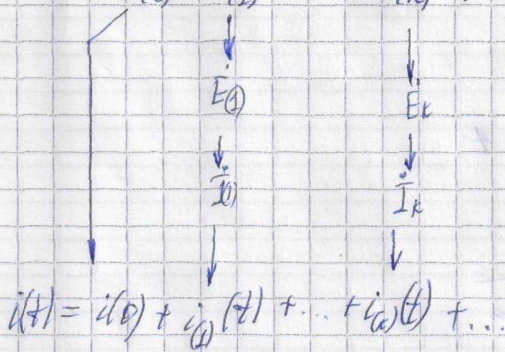 Ė₍₁₎ Ė_K
İ₍₁₎ İ_K
i(t) = i(0) + i₍₁₎(t) + ... + i₍ₖ₎(t) + ...